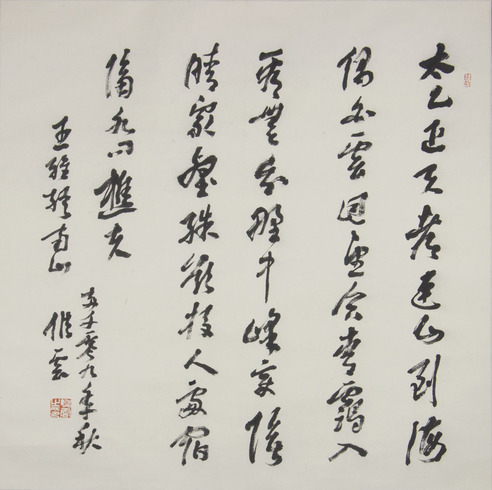 太乙近天都連山到海
隅白雲回望合青靄入
看無分野中峰變陰
晴衆壑殊欲投人處宿
隔水問樵夫
王維終南山
千零九年秋
雲